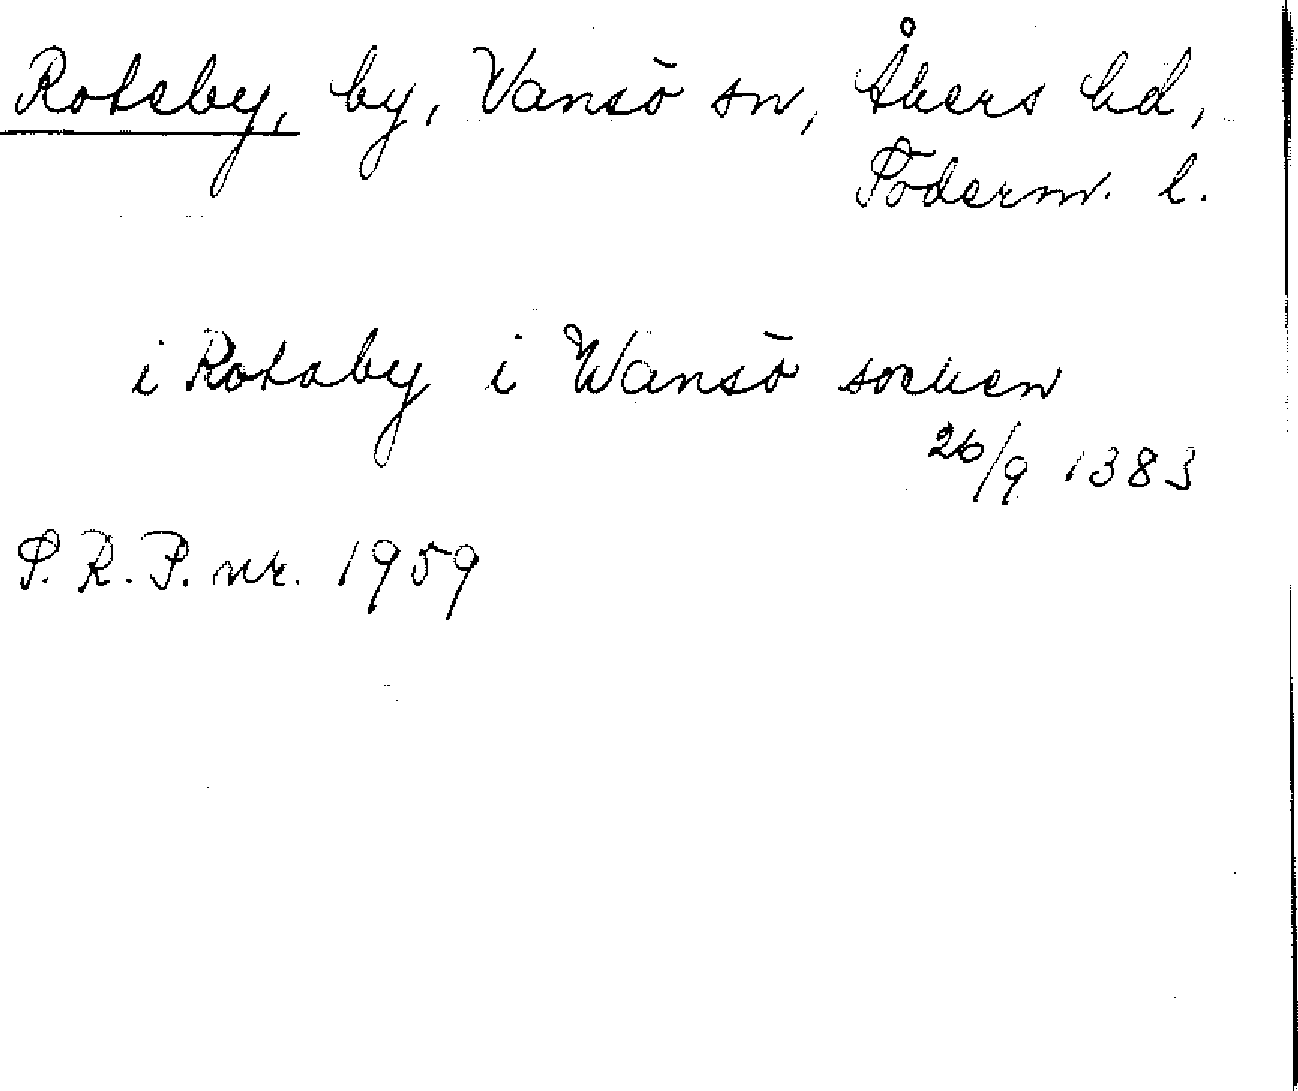 Rotsby, by, Vansö sn, Åkers hd,
Söderm. l.
i Rotaby i Wansö socken
26/9 1383
S. R. P. nr. 1959